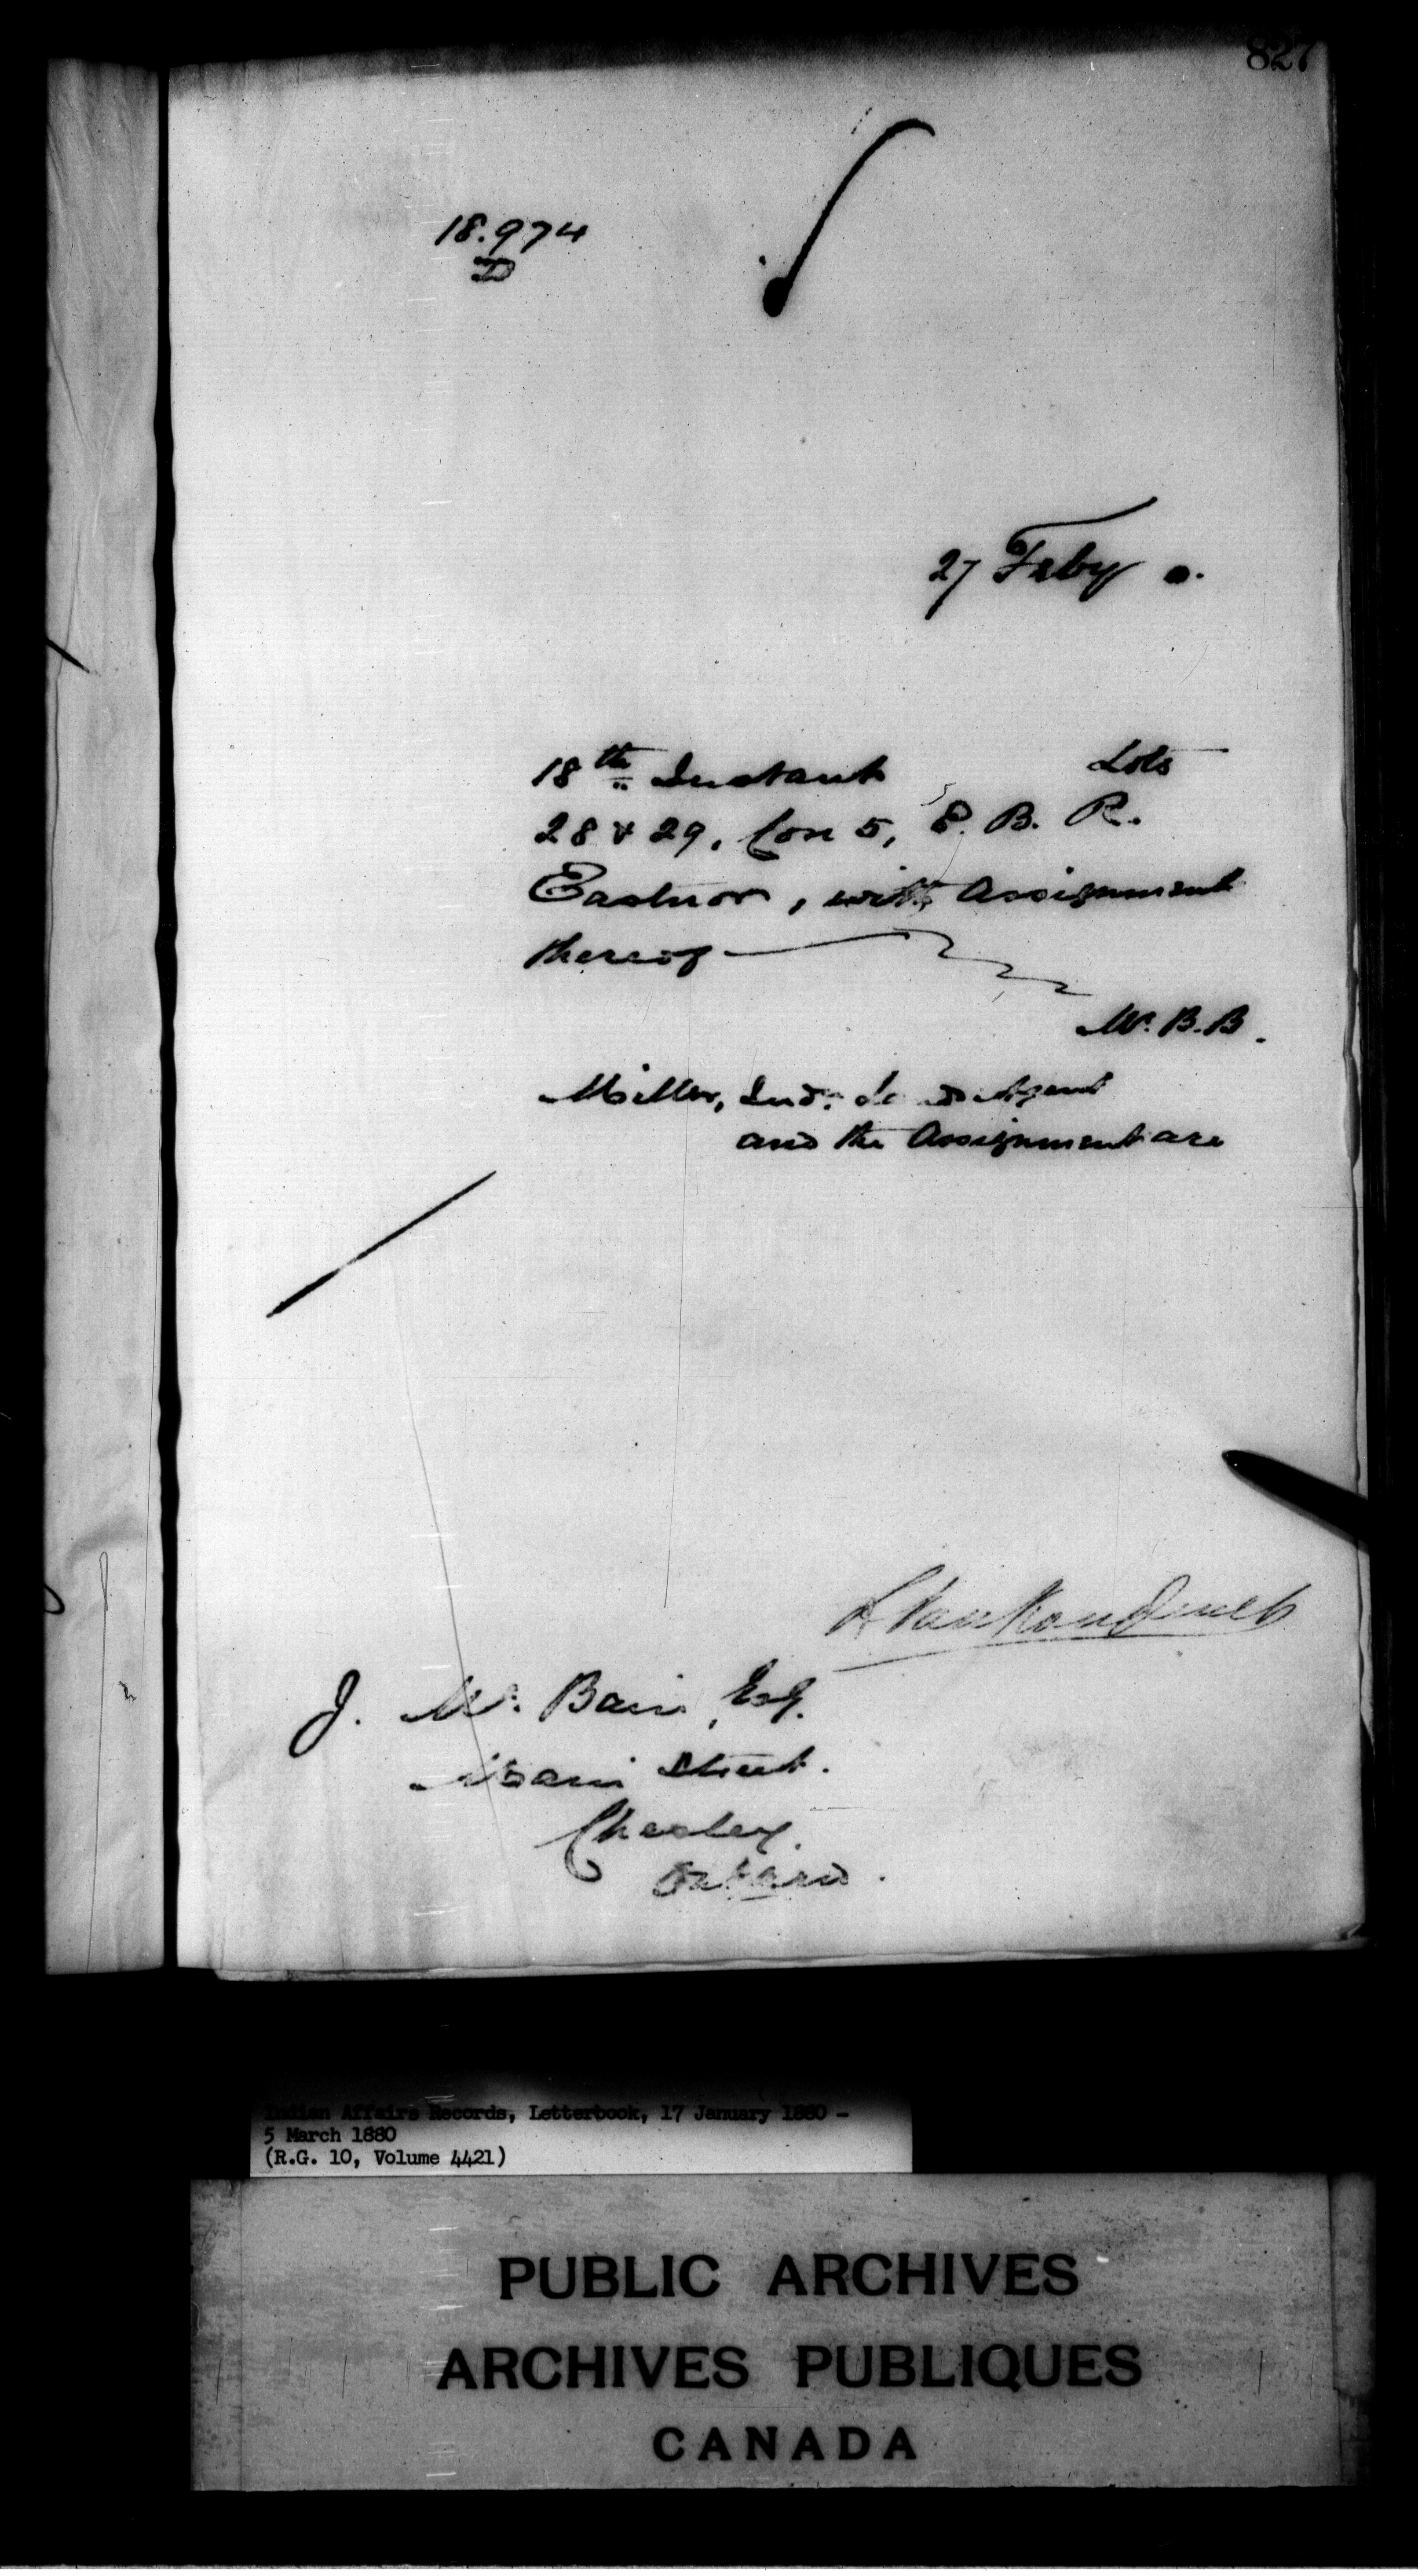 827
18.974
D
27 Feby 0.
18th Instant Lots
28 & 29, Con 5, E. B. R.
Eastnor, with Assignment
thereof
W. B. B.
Miller, Ind. Land Agent
and the Assignment are
L VanKoughnet
J. W. Bain, Esq.
Main Street.
Chesley.
Ontario.
Indian Affairs Records, Letterbook, 17 January 1880 -
5 March 1880
(R.G. 10, Volume 4421)
PUBLIC ARCHIVES
ARCHIVES PUBLIQUES
CANADA